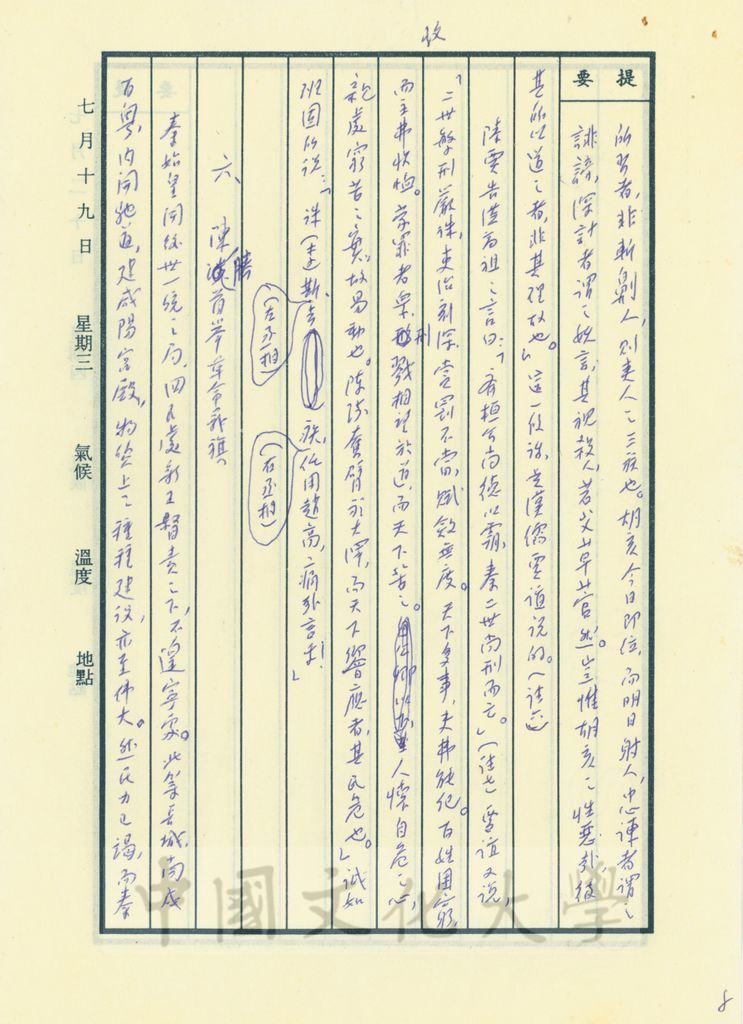 收
提要
所習者,非斬劓人,則夷人之三族也。胡亥今日即位,而明日射人,忠諫者謂之
誹謗,深計者謂之妖言,其視殺人,若艾草菅然。豈惟胡亥之性惡哉彼
其所以道之者,非其理故也。」這一段話,是漢儒賈誼說的。(註六)
陸賈告漢高祖之言曰:「齊桓公尚德以霸,秦二世尚刑而亡。」(註七)賈誼又說,
「二世繁刑嚴誅,吏治刻深,賞罰不當,賦斂無度。天下多事,吏弗能紀。百姓困窮,
而主弗收恤。蒙罪者眾,刑戮相望於道,而天下苦之。人懷自危之心,
親處窮苦之實,故易動也。陳涉奮臂於大澤,而天下響應者,其民危也。」誠如
班固所說:「誅(李斯、去疾,任用趙高,痛哉言乎!」
(左丞相)
(右丞相)
六、陳勝首舉革命義旗
秦始皇開絕世一統之局,四民處新王督責之下,不遑寧處。北築長城,南戍
百粵,內開馳道,建咸陽宮殿,物資上之種種建設,亦至偉大。然民力已竭,而秦
七月十九日 星期三 氣候 溫度 地點
中國文化大學
8